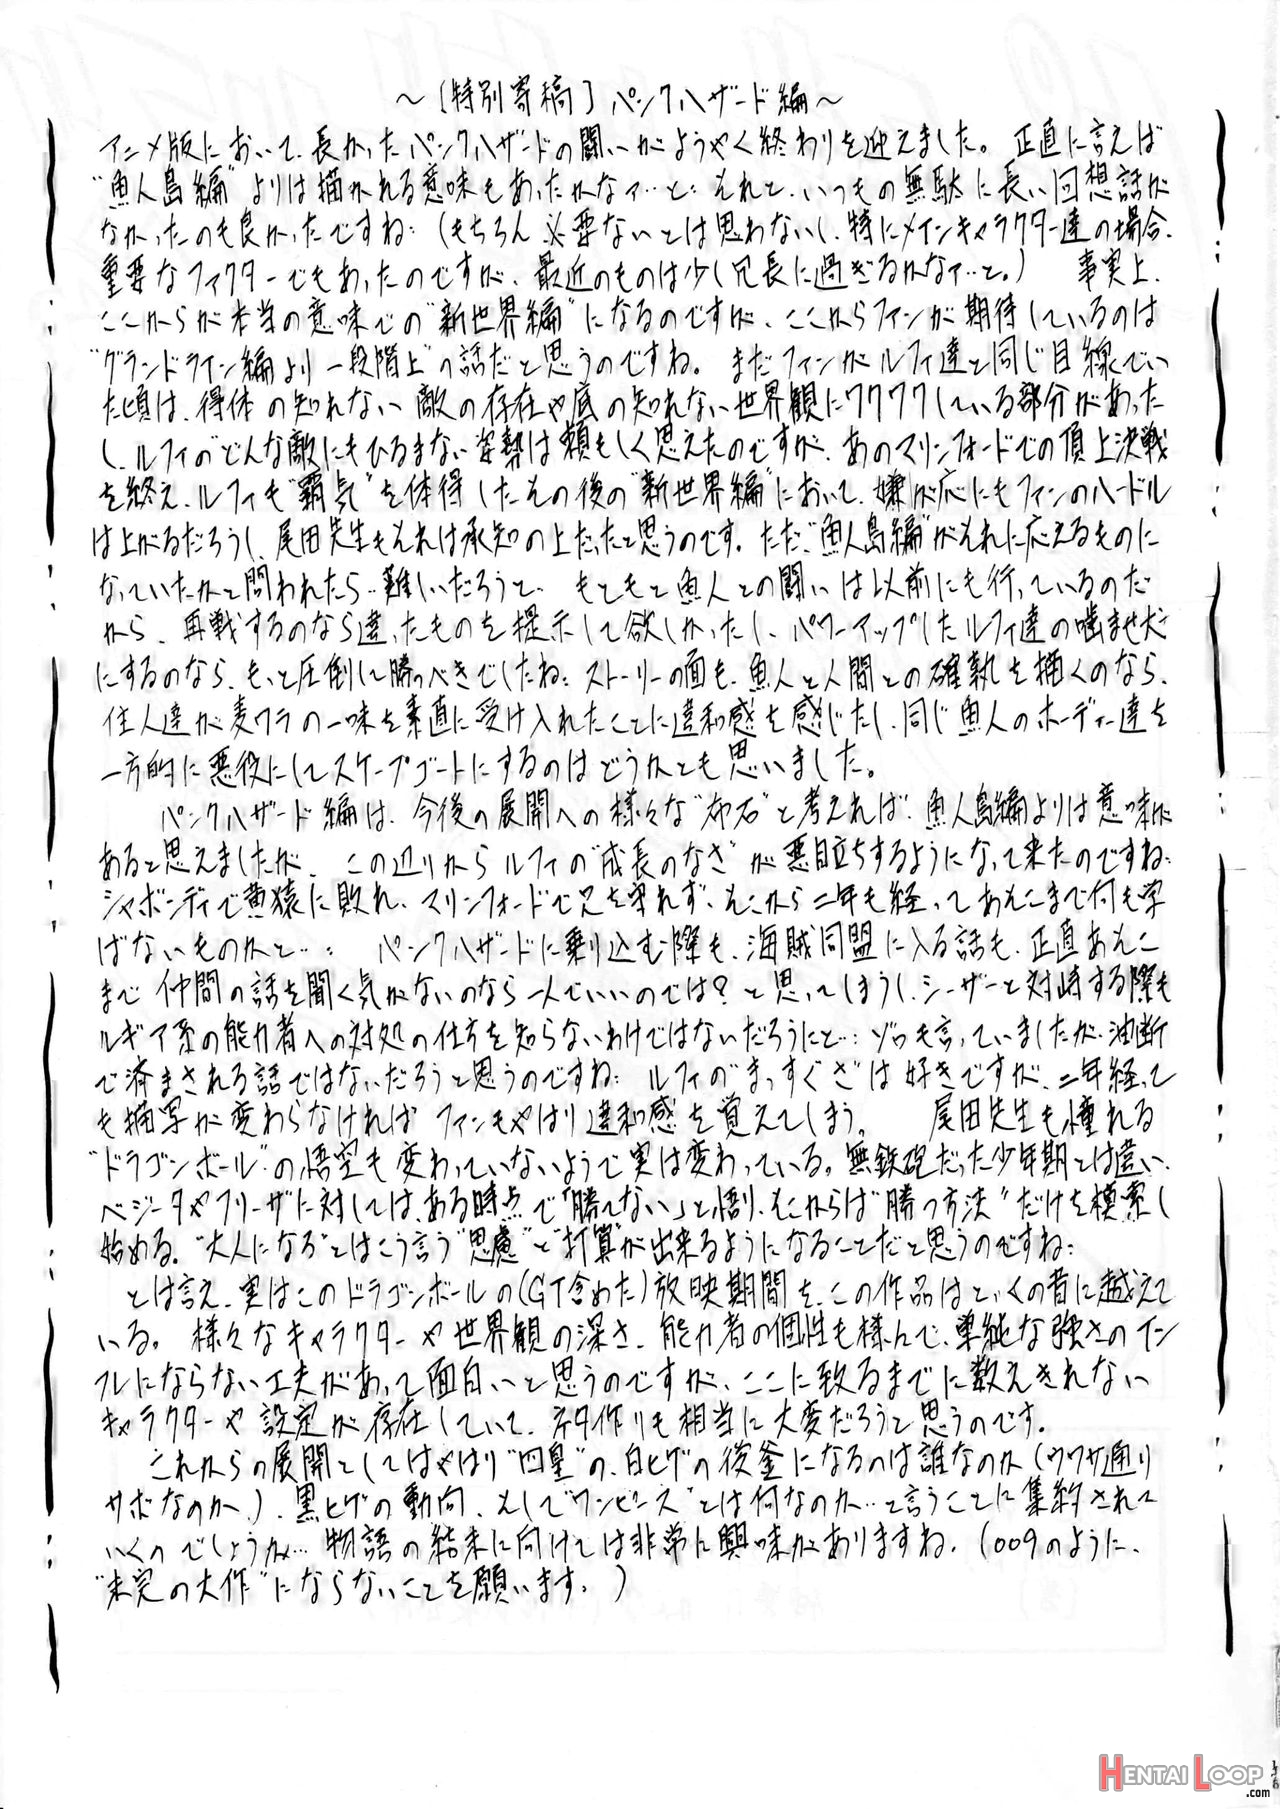 ～〔特別寄稿〕パンクハザード編～
アニメ版において、長かったパンクハザードの闘いがようやく終わりを迎えました。正直に言えば
“魚人島編”よりは描かれる意味もあったかなァ…と… それと、いつもの無駄に長い回想話が
なかったのも良かったですね…（もちろん必要ないとは思わないし、特にメインキャラクター達の場合、
重要なファクターでもあったのですが、最近のものは少し冗長に過ぎるかなァ…と。） 事実上、
ここからが本当の意味での“新世界編”になるのですが、ここからファンが期待しているのは
“グランドライン編より一段階上”の話だと思うのですね。まだファンがルフィ達と同じ目線でい
た頃は、得体の知れない敵の存在や底の知れない世界観にワクワクしている部分があった
し、ルフィの“どんな敵にもひるまない姿勢”は頼もしく思えたのですが、あのマリンフォードでの頂上決戦
を終え、ルフィも“覇気”を体得したその後の“新世界編”において、嫌が応にもファンのハードル
は上がるだろうし、尾田先生もそれは承知の上だったと思うのです。ただ、“魚人島編”がそれに応えるものに
なっていたかと問われたら…難しいだろうと、もともと魚人との闘いは以前にも行っているのだ
から、再戦するのなら違ったものを提示して欲しかったし、パワーアップしたルフィ達の噛ませ犬
にするのなら、もっと圧倒して勝つべきでしたね… ストーリーの面も、魚人と人間との確執を描くのなら、
住人達が麦ワラの一味を素直に受け入れたことに違和感を感じたし、同じ魚人のホーディー達を
一方的に悪役にしてスケープゴートにするのはどうかとも思いました。
パンクハザード編は、今後の展開への様々な“布石”と考えれば、魚人島編よりは意味が
あると思えましたが、この辺りからルフィの“成長のなさ”が悪目立ちするようになって来たのですね…
シャボンディで黄猿に敗れ、マリンフォードで兄を守れず、そこから二年も経ってあそこまで何も学
ばないものかと…… パンクハザードに乗り込む際も、海賊同盟に入る話も、正直あそこ
まで仲間の話を聞く気がないのなら一人でいいのでは？と思ってしまうし、シーザーと対峙する際も
ルギア系の能力者への対処の仕方を知らないわけではないだろうにと… ゾロも言っていましたが、油断
で済まされる話ではないだろうと思うのですね… ルフィの“まっすぐさ”は好きですが、二年経って
も描写が変わらなければファンもやはり違和感を覚えてしまう。 尾田先生も憧れる
“ドラゴンボール”の悟空も変わっていないようで実は変わっている。無鉄砲だった少年期とは違い、
ベジータやフリーザに対しては、ある時点で「勝てない」と悟り、そこからは“勝つ方法”だけを模索し
始める。“大人になる”とはこう言う“思慮”と“打算”が出来るようになることだと思うのですね…
とは言え、実はこのドラゴンボールの（GT含めた）放映期間を、この作品はとっくの昔に越えて
いる。様々なキャラクターや世界観の深さ、能力者の個性も様んで、単純な強さのイン
フレにならない工夫があって面白いと思うのですが、ここに致るまでに数えきれない
キャラクターや設定が存在していて、ネタ作りも相当に大変だろうと思うのです。
これからの展開としてはやはり“四皇”の、白ヒゲの後釜になるのは誰なのか（ウワサ通り
サボなのか、）、黒ヒゲの動向、そして“ワンピース”とは何なのか…と言うことに集約されて
いくのでしょうか… 物語の結末に向けては非常に興味がありますね。（009のように、
“未完の大作”にならないことを願います。）
HENTAI LOOP
.com